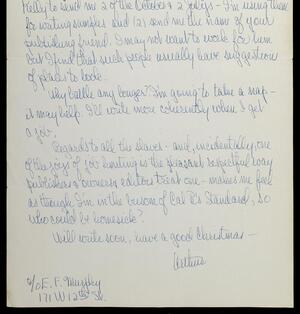 Ready to send me 2 of the October & 2 July's – I'm using them
for writing samples and (2) send me the name of your
publishing friend. I may not want to work for them
but I find that such people usually have suggestions
of places to look.
Why battle any longer? I'm going to take a nap –
it may help. I'll write more coherently when I get
a job.
Regards to all the slaves – and, incidentally, one
of the joys of job hunting is the pleasant respectful way
publishers & owners, editors treat one – makes me feel
as though I'm in the bosom of Cal It's Standard, so
who could be homesick?
Will write soon, have a good Christmas –
c/o E. F. Murphy
171 W 12th St.